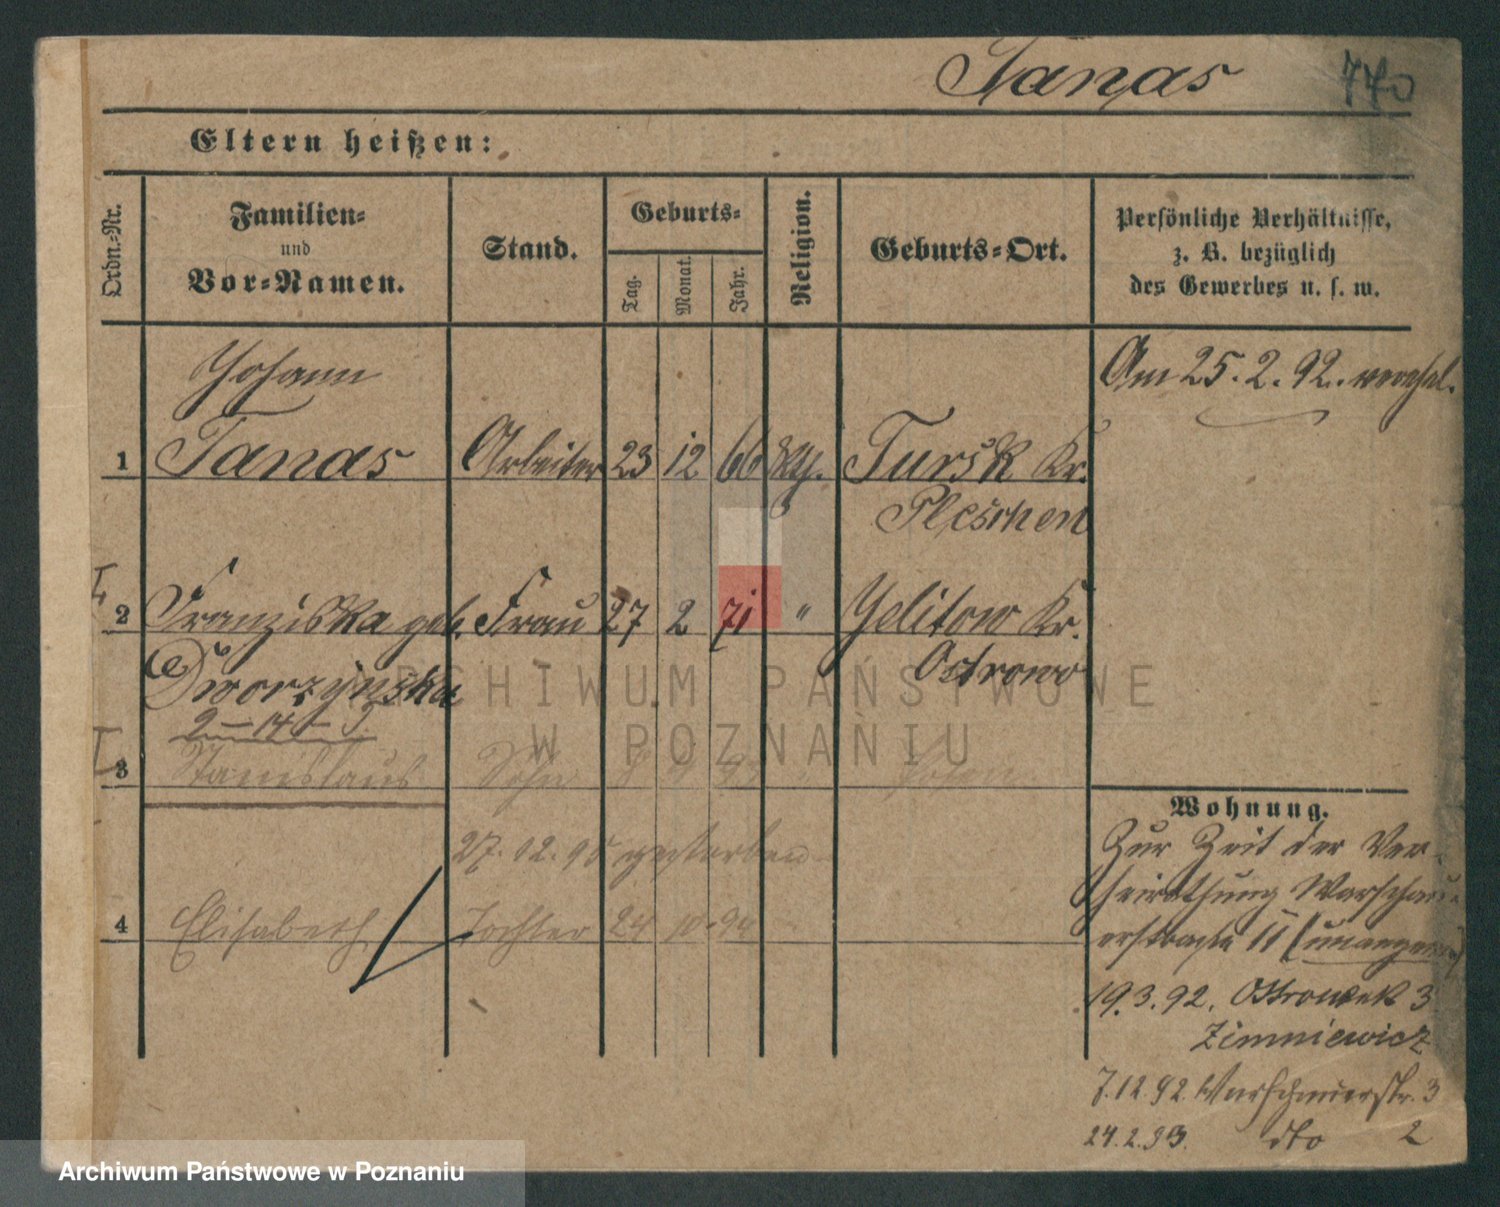 Janas 770
Eltern heißen:
Ordn.-Nr.
Familien-
und
Vor-Namen.
Stand.
Geburts-
Tag.
Monat.
Jahr.
Religion.
Geburts-Ort.
Persönliche Verhältnisse,
z. B. bezüglich
des Gewerbes u. s. w.
Johann
Am 25.2.92. verehel.
1 Janas Arbeiter 23 12 66 kth. Tursk Kr.
Pleschen
2 Franziska geb. Frau 27 2 71 " Jelitow Kr.
Dworzynska Ostrowo
2 - 14 - J.
3 Stanislaus Sohn Posen
Wohnung.
27.02.95 gestorben
4 Elisabeth Tochter 24 10 94
Zur Zeit der Ver-
heirathung Warschau-
erstraße 11
19.3.92. Ostrowek 3
Zimniewicz
7.12.92. Warschauerstr. 3
24.2.93. dto 2
ARCHIWUM PAŃSTWOWE
W POZNANIU
Archiwum Państwowe w Poznaniu